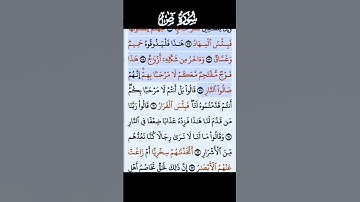 سُورَةُ صٓ
فَبِئْسَ ٱلْمِهَادُ ۝ هَـٰذَا فَلْيَذُوقُوهُ حَمِيمٌ
وَغَسَّاقٌ ۝ وَءَاخَرُ مِن شَكْلِهِۦٓ أَزْوَٰجٌ ۝ هَـٰذَا
فَوْجٌ مُّقْتَحِمٌ مَّعَكُمْ لَا مَرْحَبًۢا بِهِمْ إِنَّهُمْ
صَالُوا۟ ٱلنَّارِ ۝ قَالُوا۟ بَلْ أَنتُمْ لَا مَرْحَبًۢا بِكُمْ
أَنتُمْ قَدَّمْتُمُوهُ لَنَا فَبِئْسَ ٱلْقَرَارُ ۝ قَالُوا۟ رَبَّنَا
مَن قَدَّمَ لَنَا هَـٰذَا فَزِدْهُ عَذَابًا ضِعْفًا فِى ٱلنَّارِ
۝ وَقَالُوا۟ مَا لَنَا لَا نَرَىٰ رِجَالًا كُنَّا نَعُدُّهُم
مِّنَ ٱلْأَشْرَارِ ۝ أَتَّخَذْنَـٰهُمْ سِخْرِيًّا أَمْ زَاغَتْ
عَنْهُمُ ٱلْأَبْصَـٰرُ ۝ إِنَّ ذَٰلِكَ لَحَقٌّ تَخَاصُمُ أَهْلِ